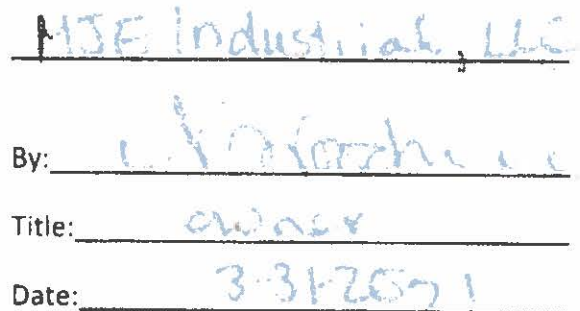 MJE Industrial, LLC
By:
Title: owner
Date: 3-31-2021